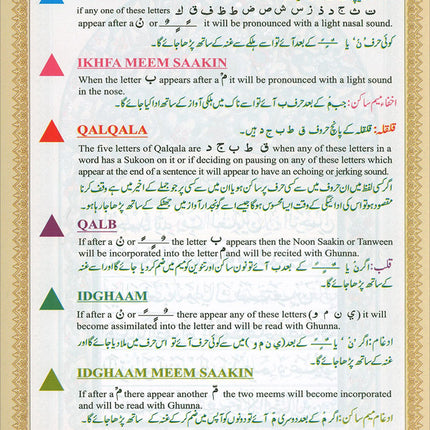 if any one of these letters ت ث ج د ذ ز س ش ص ض ط ظ ف ق ك
appear after a نْ or ـًـٍـٌ it will be pronounced with a light nasal sound.
کوئی حرف نْ یا ـًـٍـٌ کے بعد آئے تو اسے ہلکے سے غنہ کے ساتھ پڑھا جائے گا۔
IKHFA MEEM SAAKIN
When the letter ب appears after a مْ it will be pronounced with a light sound
in the nose.
اخفاء میم ساکن: جب مْ کے بعد حرف ب آئے تو اسے ناک میں ہلکی آواز کے ساتھ ادا کیا جائے گا
QALQALA
قلقلہ: قلقلہ کے پانچ حروف ق ط ب ج د ہیں۔
The five letters of Qalqala are ق ط ب ج د when any of these letters in a
word has a Sukoon on it or if deciding on pausing on any of these letters which
appear at the end of a sentence it will appear to have an echoing or jerking sound.
اگر کسی لفظ میں ان حروف میں سے کسی حرف پر ساکن ہو یا ان میں سے کسی پر جو جملے کے اخیر میں ہے وقف کرنا
مقصود ہو تو اس کی ادائیگی کے وقت ایسا محسوس ہوگا جیسے اسے گونجدار آواز میں جھٹکے کے ساتھ پڑھا جا رہا ہو۔
QALB
If after a نْ or ـًـٍـٌ the letter ب appears then the Noon Saakin or Tanween
will be incorporated into the letter م and will be recited with Ghunna.
قلب: اگر نْ یا ـًـٍـٌ کے بعد ب آئے تو نون ساکن اور تنوین کو میم میں ضم کر دیا جائے گا اور اسے غنہ
کے ساتھ پڑھا جائے گا۔
IDGHAAM
If after a نْ or ـًـٍـٌ there appear any of these letters (ي ن م و) it will
become assimilated into the letter and will be read with Ghunna.
ادغام: اگر نْ یا ـًـٍـٌ کے بعد (ي ن م و) میں سے کوئی حرف آئے تو اس حرف میں ملا دیا جائے گا اور
غنہ کے ساتھ پڑھا جائے گا۔
IDGHAAM MEEM SAAKIN
If after a مْ there appear another م the two meems will become incorporated
and will be read with Ghunna.
ادغام میم ساکن: اگر مْ کے بعد دوسری م آئے تو دونوں کو آپس میں ضم کر کے غنہ کے ساتھ پڑھا جائے گا۔